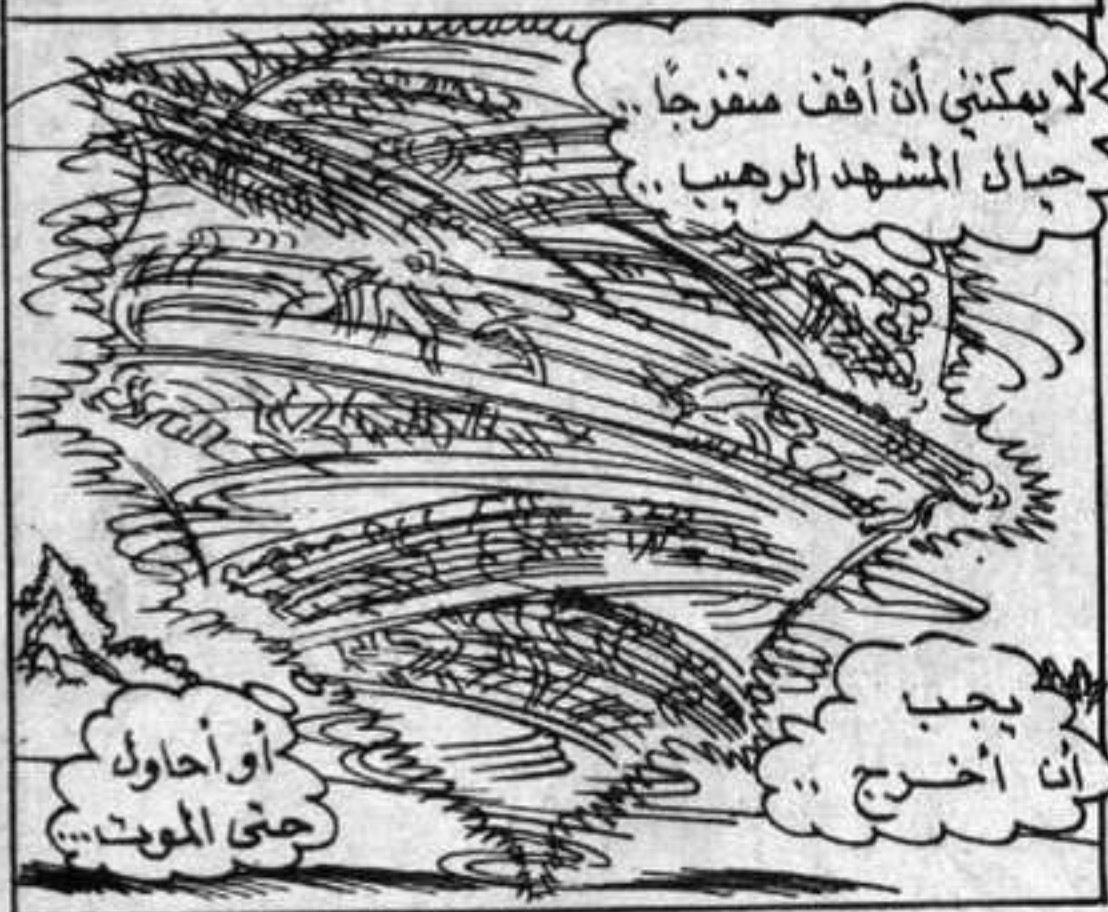 لا يمكنني أن أقف متفرجًا ..
حيال المشهد الرهيب ..
يجب
أن أخرج ..
أو أحاول
حتى الموت ...